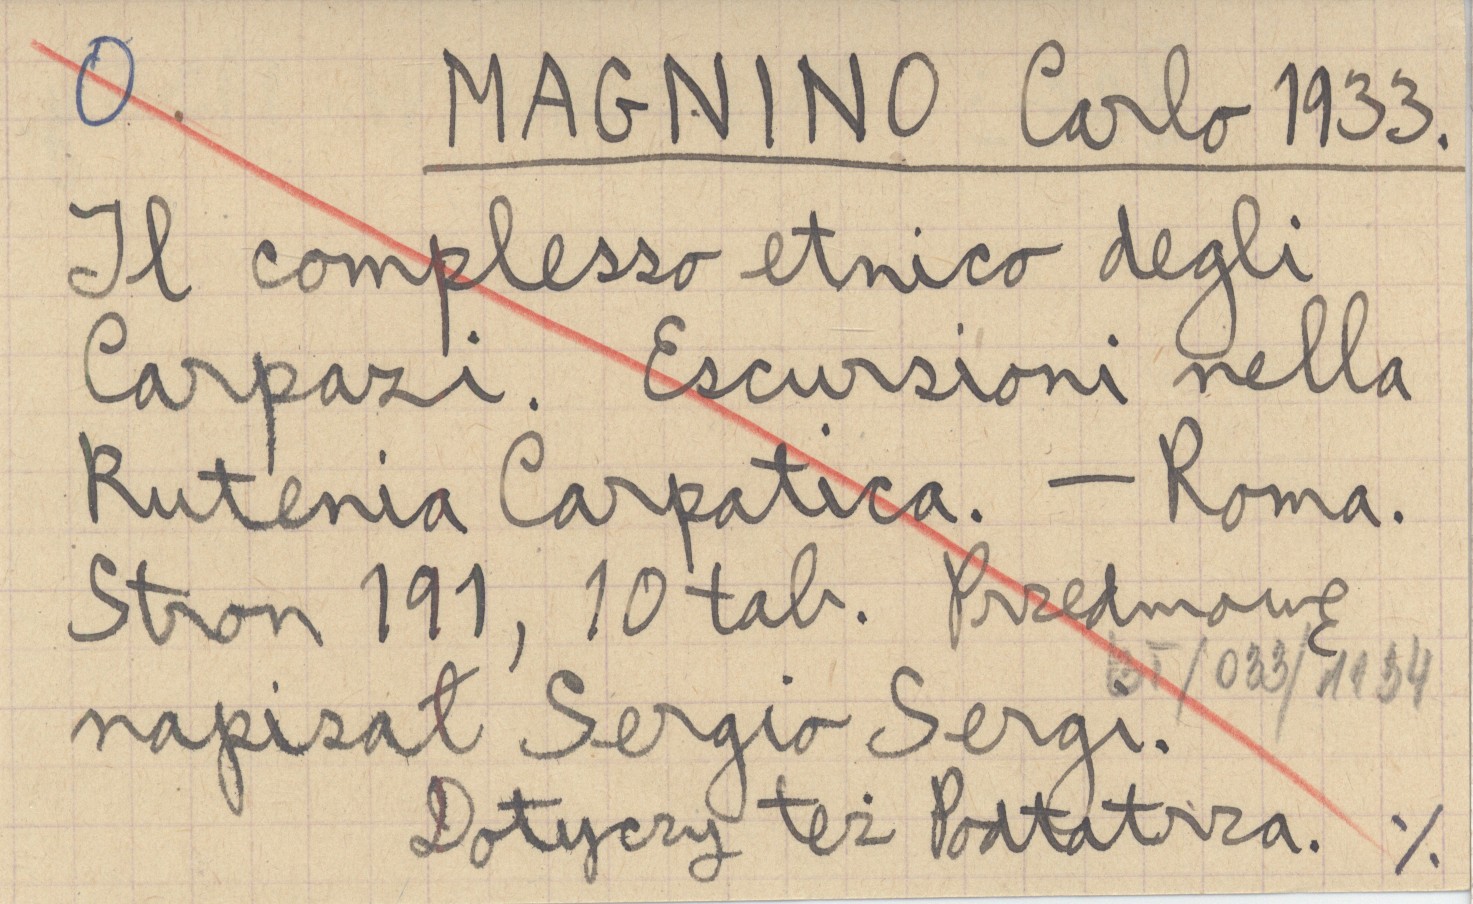 O. MAGNINO Carlo 1933.
Il complesso etnico degli
Carpazi. Escursioni nella
Rutenia Carpatica. — Roma.
Stron 191, 10 tab. Przedmowę
/033/1134
napisał Sergio Sergi.
Dotyczy też Podtatrza. ./.